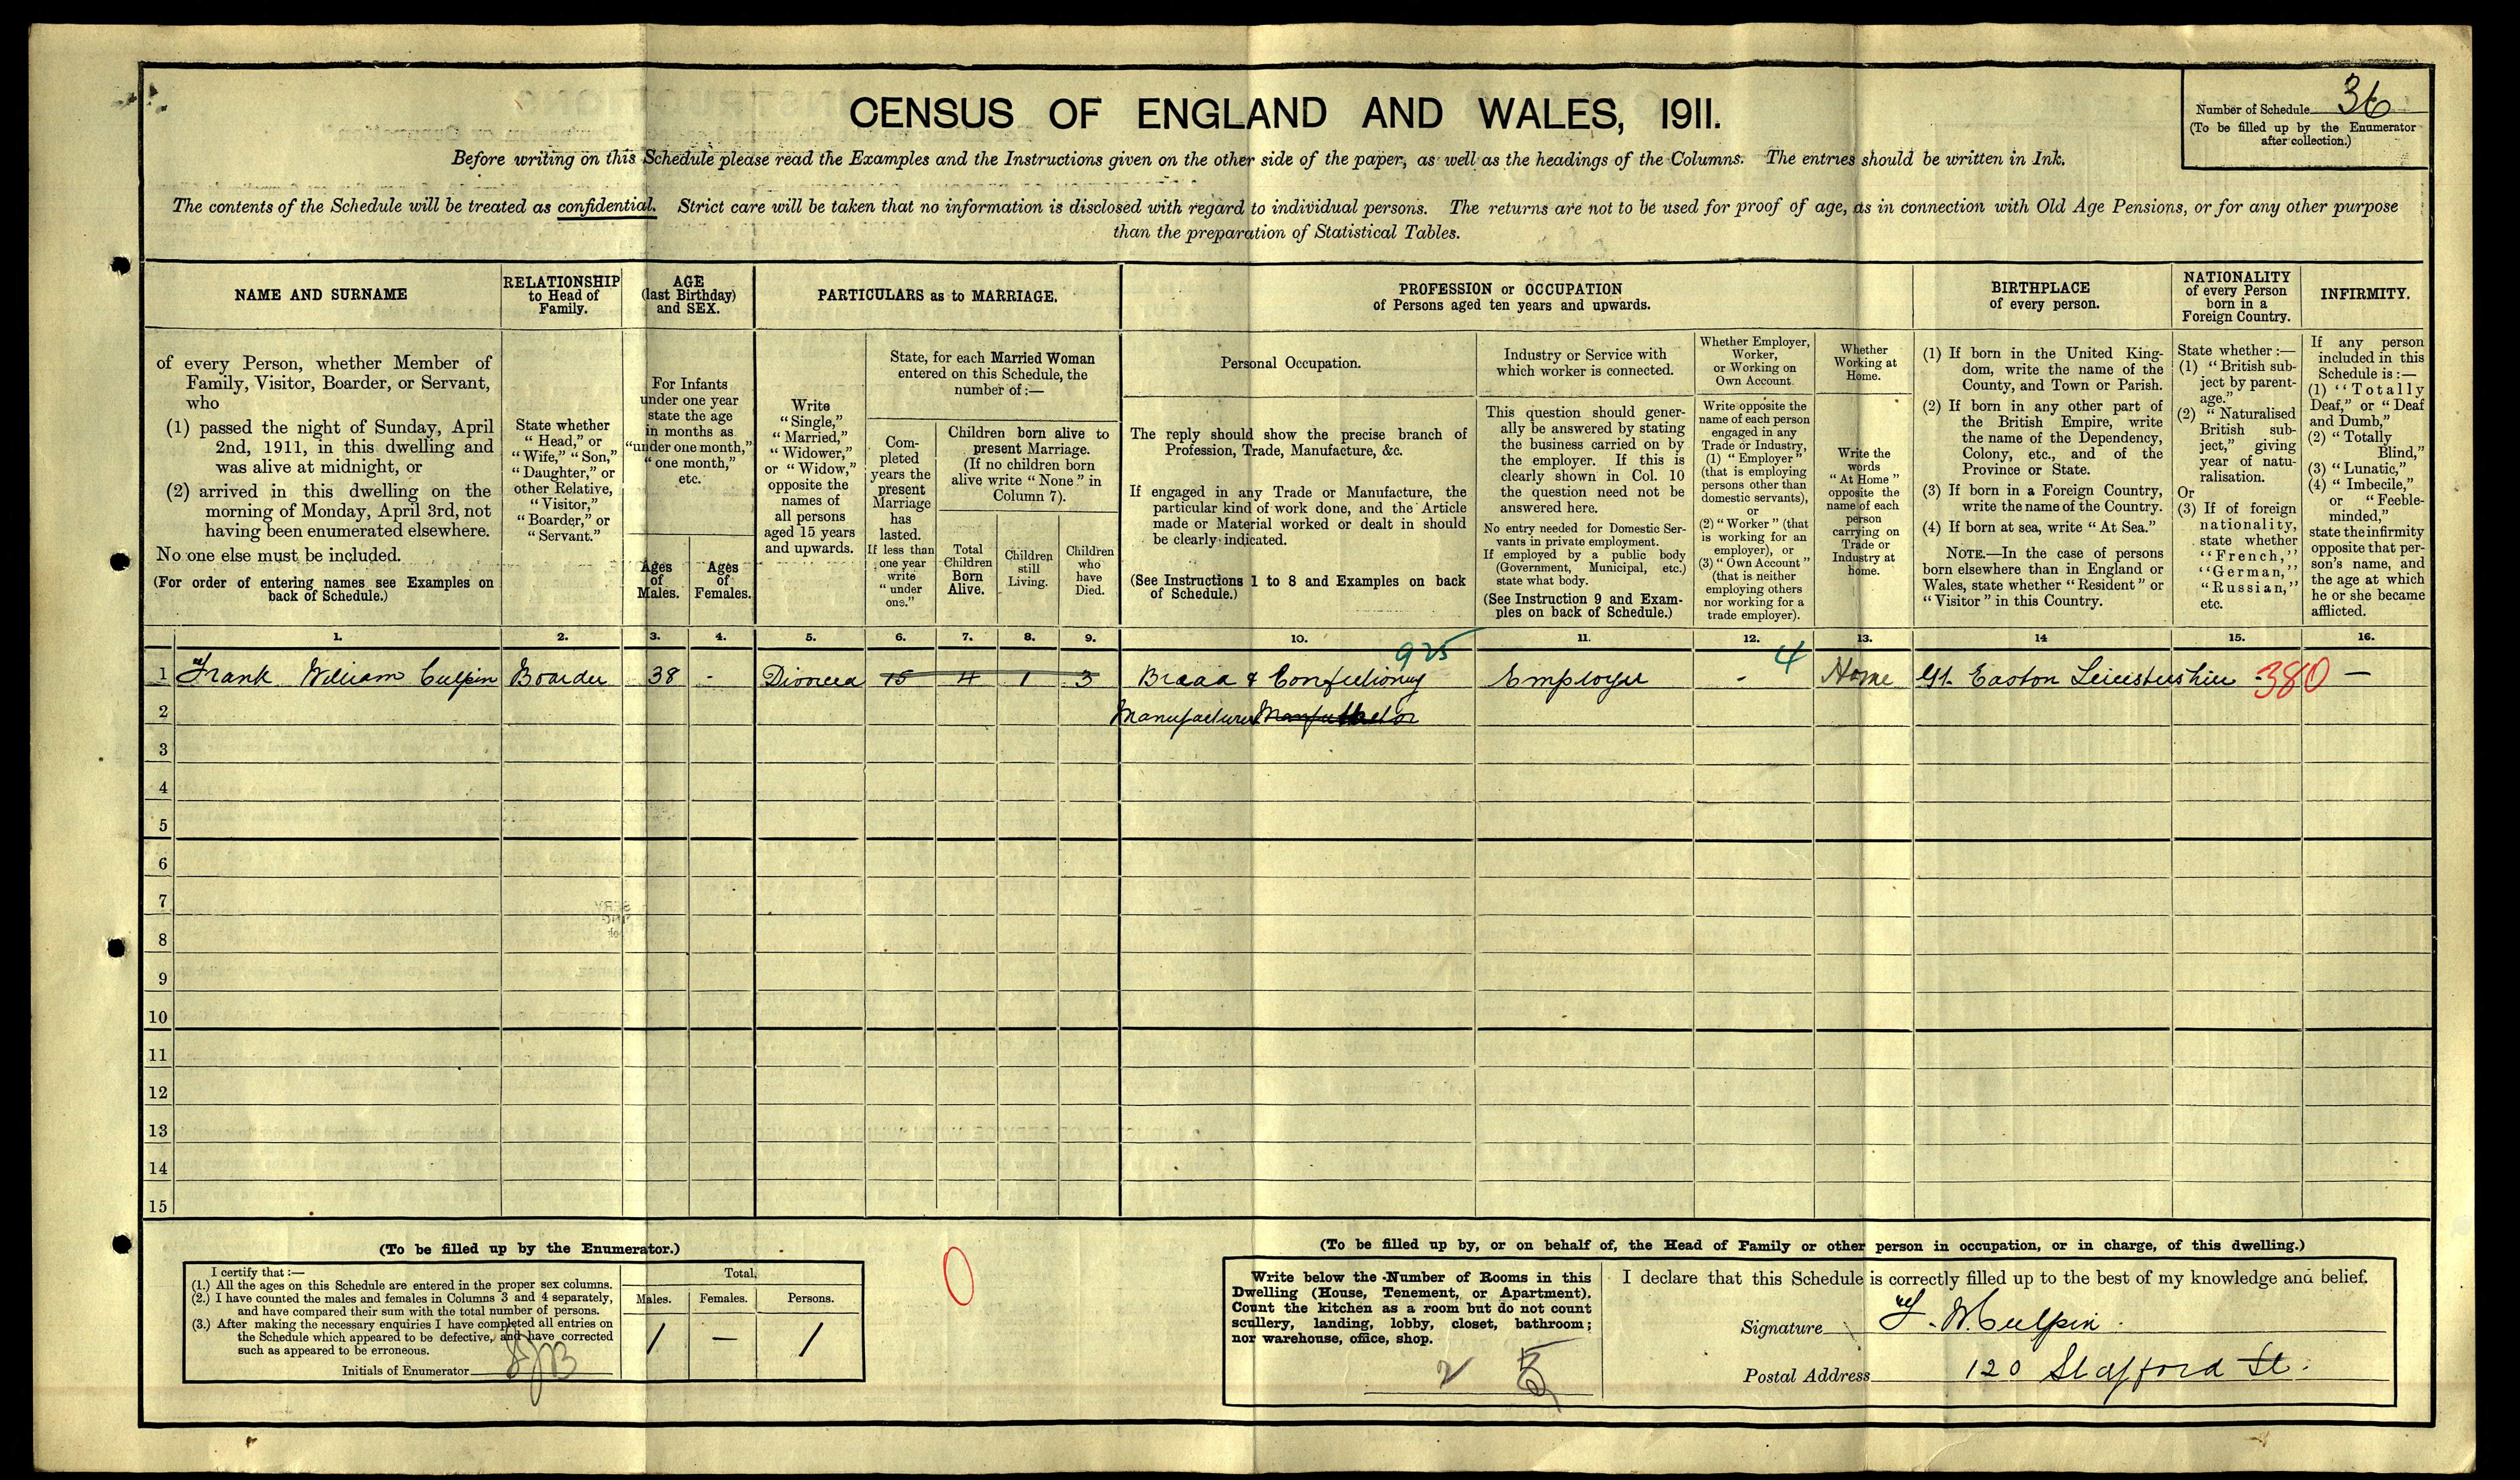 CENSUS OF ENGLAND AND WALES, 1911.
Number of Schedule 36
(To be filled up by the Enumerator
after collection.)
Before writing on this Schedule please read the Examples and the Instructions given on the other side of the paper, as well as the headings of the Columns. The entries should be written in Ink.
The contents of the Schedule will be treated as confidential. Strict care will be taken that no information is disclosed with regard to individual persons. The returns are not to be used for proof of age, as in connection with Old Age Pensions, or for any other purpose
than the preparation of Statistical Tables.
NAME AND SURNAME
of every Person, whether Member of
Family, Visitor, Boarder, or Servant,
who
(1) passed the night of Sunday, April
2nd, 1911, in this dwelling and
was alive at midnight, or
(2) arrived in this dwelling on the
morning of Monday, April 3rd, not
having been enumerated elsewhere.
No one else must be included.
(For order of entering names see Examples on
back of Schedule.)
RELATIONSHIP
to Head of
Family.
State whether
"Head," or
"Wife," "Son,"
"Daughter," or
other Relative,
"Visitor,"
"Boarder," or
"Servant."
AGE
(last Birthday)
and SEX.
For Infants
under one year
state the age
in months as
"under one month,"
"one month,"
etc.
Ages
of
Males.
Ages
of
Females.
PARTICULARS as to MARRIAGE.
Write
"Single,"
"Married,"
"Widower,"
or "Widow,"
opposite the
names of
all persons
aged 15 years
and upwards.
State, for each Married Woman
entered on this Schedule, the
number of:—
Com-
pleted
years the
present
Marriage
has
lasted.
If less than
one year
write
"under
one."
Children born alive to
present Marriage.
(If no children born
alive write "None" in
Column 7).
Total
Children
Born
Alive.
Children
still
Living.
Children
who
have
Died.
PROFESSION or OCCUPATION
of Persons aged ten years and upwards.
Personal Occupation.
The reply should show the precise branch of
Profession, Trade, Manufacture, &c.
If engaged in any Trade or Manufacture, the
particular kind of work done, and the Article
made or Material worked or dealt in should
be clearly indicated.
(See Instructions 1 to 8 and Examples on back
of Schedule.)
Industry or Service with
which worker is connected.
This question should gener-
ally be answered by stating
the business carried on by
the employer. If this is
clearly shown in Col. 10
the question need not be
answered here.
No entry needed for Domestic Ser-
vants in private employment.
If employed by a public body
(Government, Municipal, etc.)
state what body.
(See Instruction 9 and Exam-
ples on back of Schedule.)
Whether Employer,
Worker,
or Working on
Own Account.
Write opposite the
name of each person
engaged in any
Trade or Industry,
(1) "Employer"
(that is employing
persons other than
domestic servants),
or
(2) "Worker" (that
is working for an
employer), or
(3) "Own Account"
(that is neither
employing others
nor working for a
trade employer).
Whether
Working at
Home.
Write the
words
"At Home"
opposite the
name of each
person
carrying on
Trade or
Industry at
home.
BIRTHPLACE
of every person.
(1) If born in the United King-
dom, write the name of the
County, and Town or Parish.
(2) If born in any other part of
the British Empire, write
the name of the Dependency,
Colony, etc., and of the
Province or State.
(3) If born in a Foreign Country,
write the name of the Country.
(4) If born at sea, write "At Sea."
NOTE.—In the case of persons
born elsewhere than in England or
Wales, state whether "Resident" or
"Visitor" in this Country.
NATIONALITY
of every Person
born in a
Foreign Country.
State whether:—
(1) "British sub-
ject by parent-
age."
(2) "Naturalised
British sub-
ject," giving
year of natu-
ralisation.
Or
(3) If of foreign
nationality,
state whether
"French,"
"German,"
"Russian,"
etc.
INFIRMITY.
If any person
included in this
Schedule is:—
(1) "Totally
Deaf," or "Deaf
and Dumb,"
(2) "Totally
Blind,"
(3) "Lunatic,"
(4) "Imbecile,"
or "Feeble-
minded,"
state the infirmity
opposite that per-
son's name, and
the age at which
he or she became
afflicted.
1. 2. 3. 4. 5. 6. 7. 8. 9. 10. 11. 12. 13. 14 15. 16.
925 4
1 Frank William Culpin Boarder 38 - Divorced 15 4 1 3 Bread & Confectionery Employer - Home Gt. Easton Leicestershire 380 —
2 Manufacturer
3
4
5
6
7
8
9
10
11
12
13
14
15
(To be filled up by the Enumerator.)
I certify that:—
(1.) All the ages on this Schedule are entered in the proper sex columns.
(2.) I have counted the males and females in Columns 3 and 4 separately,
and have compared their sum with the total number of persons.
(3.) After making the necessary enquiries I have completed all entries on
the Schedule which appeared to be defective, and have corrected
such as appeared to be erroneous.
Initials of Enumerator
Total.
Males. Females. Persons.
1 — 1
0
(To be filled up by, or on behalf of, the Head of Family or other person in occupation, or in charge, of this dwelling.)
Write below the Number of Rooms in this
Dwelling (House, Tenement, or Apartment).
Count the kitchen as a room but do not count
scullery, landing, lobby, closet, bathroom;
nor warehouse, office, shop.
I declare that this Schedule is correctly filled up to the best of my knowledge and belief.
Signature F. W. Culpin.
Postal Address 120 Stafford St.